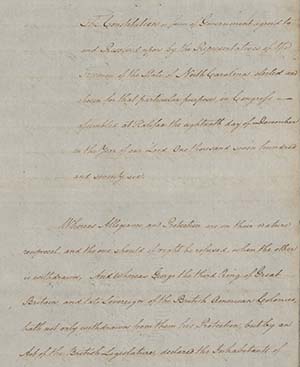 The Constitution or form of Government agreed to
and Resolved upon by the Representatives of the
Freemen of the State of North Carolina elected and
chose for that particular purpose, in Congress as-
-sembled at Halifax the eighteenth day of December
in the Year of our Lord One thousand seven hundred
and seventy six.
Whereas Allegiance and Protection are in their nature
reciprocal, and the one should of right be refused, when the other
is withdrawn, And whereas George the third King of Great
Britain and late Sovereign of the British American Colonies,
hath not only withdrawn from them his Protection, but by an
Act of the British Legislature, declared the Inhabitants of